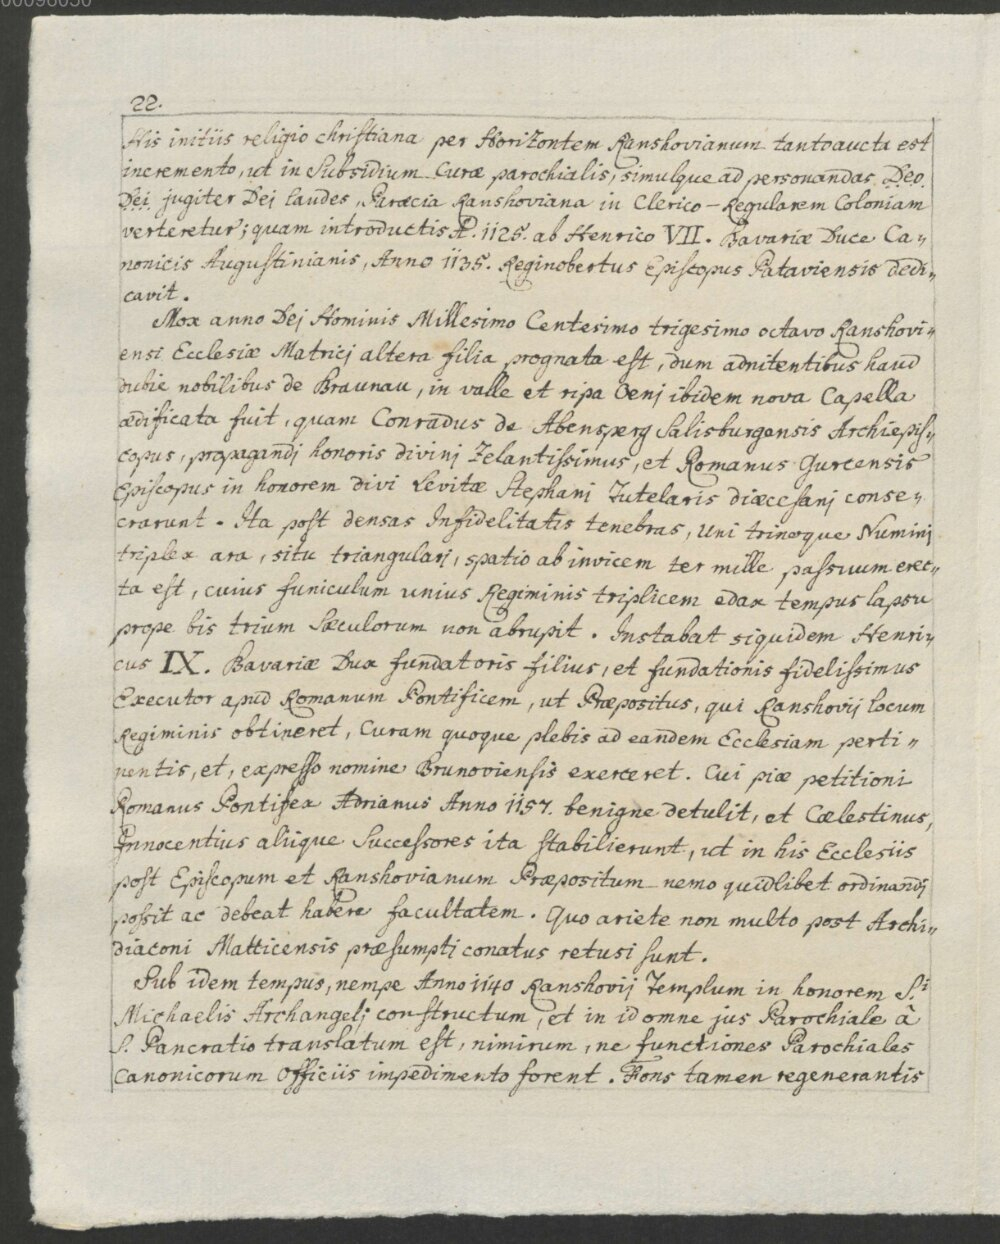 00096050
22.
His initiis religio christiana per Horizontem Ranshovianum tanto aucta est
incremento, ut in Subsidium Curæ parochialis, simulque ad personandas Deo
Dei jugiter Dej laudes, Paræcia Ranshoviana in Clerico-Regularem Coloniam
verteretur; quam introductis A. 1125. ab Henrico VII. Bavariæ Duce Ca„
nonicis Augustinianis, Anno 1135. Reginobertus Episcopus Pataviensis dedi„
cavit.
Mox anno Dej Hominis Millesimo Centesimo trigesimo octavo Ranshovi„
ensi Ecclesiæ Matricj altera filia prognata est, dum adnitentibus haud
dubie nobilibus de Braunau, in valle et ripa Oenj ibidem nova Capella
ædificata fuit, quam Conradus de Abensperg Salisburgensis Archiepis„
copus, propagandj honoris divinj Zelantissimus, et Romanus Gurcensis
Episcopus in honorem divi Levitæ Stephanj Tutelaris diæcesanj conse„
crarunt. Ita post densas Infidelitatis tenebras, Uni trinoque Numinj
triplex ara, situ triangularj, spatio ab invicem ter mille passuum erec„
ta est, cuius funiculum unius Regiminis triplicem edax tempus lapsu
prope bis trium Sæculorum non abrupit. Instabat siquidem Henri„
cus IX. Bavariæ Dux fundatoris filius, et fundationis fidelissimus
Executor apud Romanum Pontificem, ut Præpositus, qui Ranshovij locum
Regiminis obtineret, Curam quoque plebis ad eandem Ecclesiam perti„
nentis, et, expresso nomine Brunoviensis exerceret. Cui piæ petitioni
Romanus Pontifex Adrianus Anno 1157. benigne detulit, et Cælestinus,
Innocentius aliique Successores ita stabilierunt, ut in his Ecclesiis
post Episcopum et Ranshovianum Præpositum nemo quidlibet ordinandj
possit ac debeat habere facultatem. Quo ariete non multo post Archi„
diaconi Matticensis præsumpti conatus retusi sunt.
Sub idem tempus, nempe Anno 1140 Ranshovij Templum in honorem S.i
Michaelis Archangelj constructum, et in id omne jus Parochiale à
S. Pancratio translatum est, nimirum, ne functiones Parochiales
Canonicorum Officiis impedimento forent. Fons tamen regenerantis